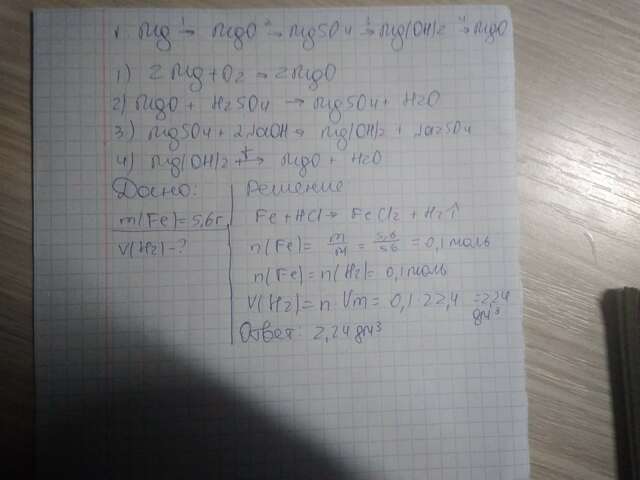 1. Mg 1→ MgO 2→ MgSO4 3→ Mg(OH)2 4→ MgO
1) 2Mg + O2 → 2MgO
2) MgO + H2SO4 → MgSO4 + H2O
3) MgSO4 + 2NaOH → Mg(OH)2 + Na2SO4
4) Mg(OH)2 t→ MgO + H2O
Дано:
m(Fe) = 5,6г
V(H2) = ?
Решение
Fe + HCl → FeCl2 + H2↑
n(Fe) = m/M = 5,6/56 = 0,1 моль
n(Fe) = n(H2) = 0,1 моль
V(H2) = n · Vm = 0,1 · 22,4 = 2,24
дм³
Ответ: 2,24 дм³